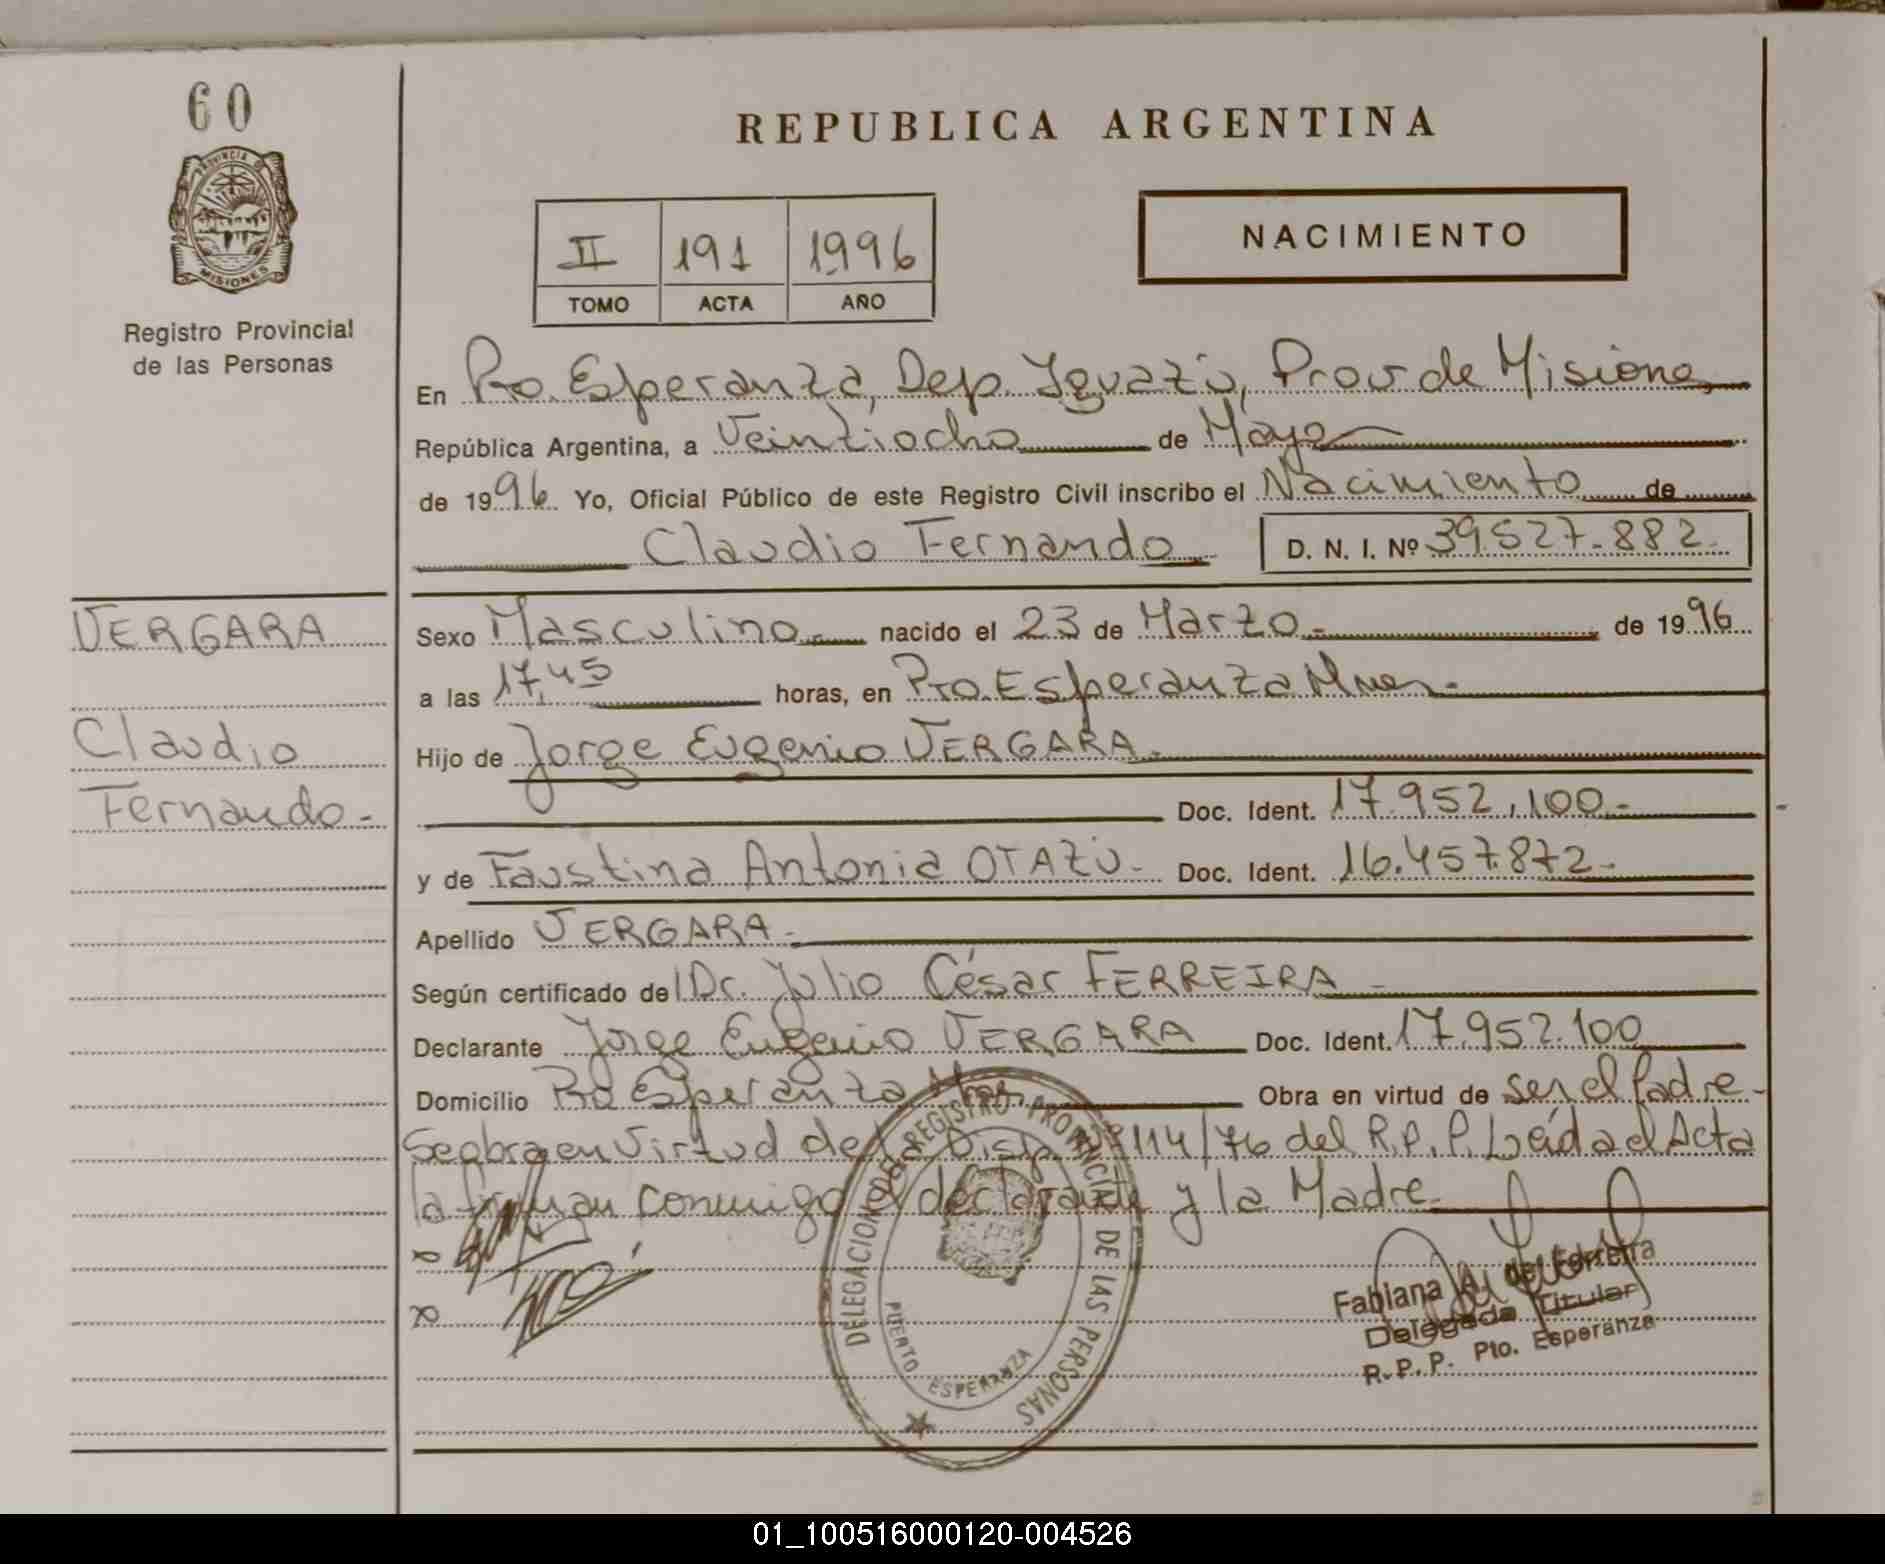 60
PROVINCIA DE
MISIONES
Registro Provincial
de las Personas
REPUBLICA ARGENTINA
II 191 1996
TOMO ACTA AÑO
NACIMIENTO
En Pto. Esperanza, Dep. Iguazú, Prov de Misiones
República Argentina, a Veintiocho de Mayo
de 1996 Yo, Oficial Público de este Registro Civil inscribo el Nacimiento de
Claudio Fernando D. N. I. Nº 39.527.882
VERGARA
Claudio
Fernando.-
Sexo Masculino nacido el 23 de Marzo.- de 1996
a las 17,45 horas, en Pto. Esperanza Mnes.-
Hijo de Jorge Eugenio VERGARA.-
Doc. Ident. 17.952.100.-
y de Faustina Antonia OTAZÚ.- Doc. Ident. 16.457.872.-
Apellido VERGARA.-
Según certificado del Dr. Julio César FERREIRA.-
Declarante Jorge Eugenio VERGARA Doc. Ident. 17.952.100
Domicilio Pto Esperanza Mnes. Obra en virtud de ser el Padre-
Se obra en Virtud de la Disp. 114/76 del R.P.P. Leída el Acta
la firman conmigo el declarante y la Madre.
DELEGACION DEL REGISTRO PROVINCIAL DE LAS PERSONAS
PUERTO ESPERANZA
Fabiana A. de Ferreira
Delegada Titular
R.P.P. Pto. Esperanza
01_100516000120-004526